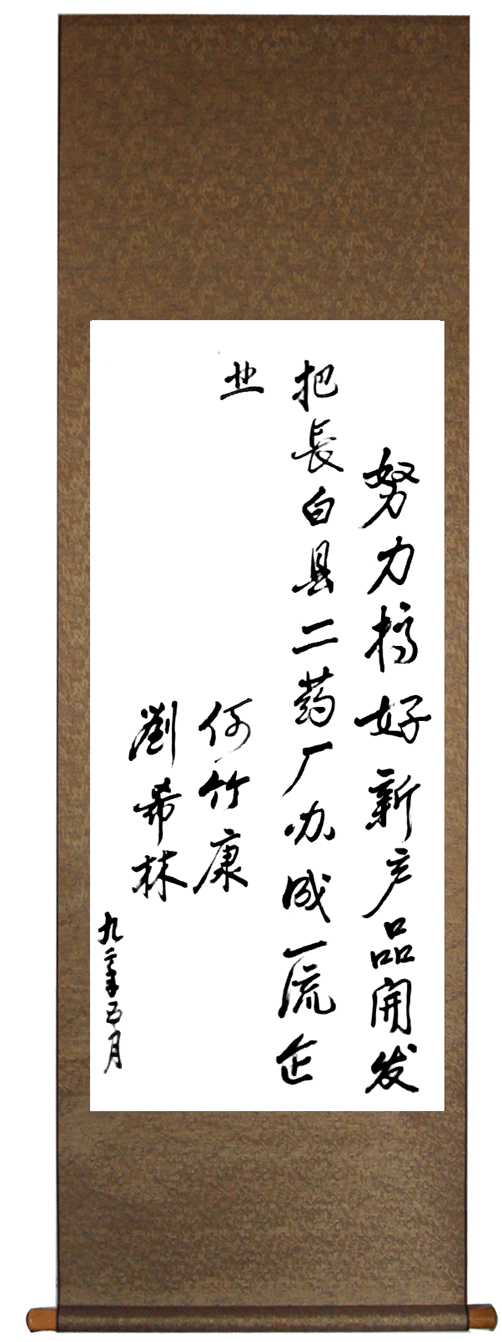 努力搞好新产品開发
把長白县二药厂办成一流企
业
何竹康
劉希林
九二年五月